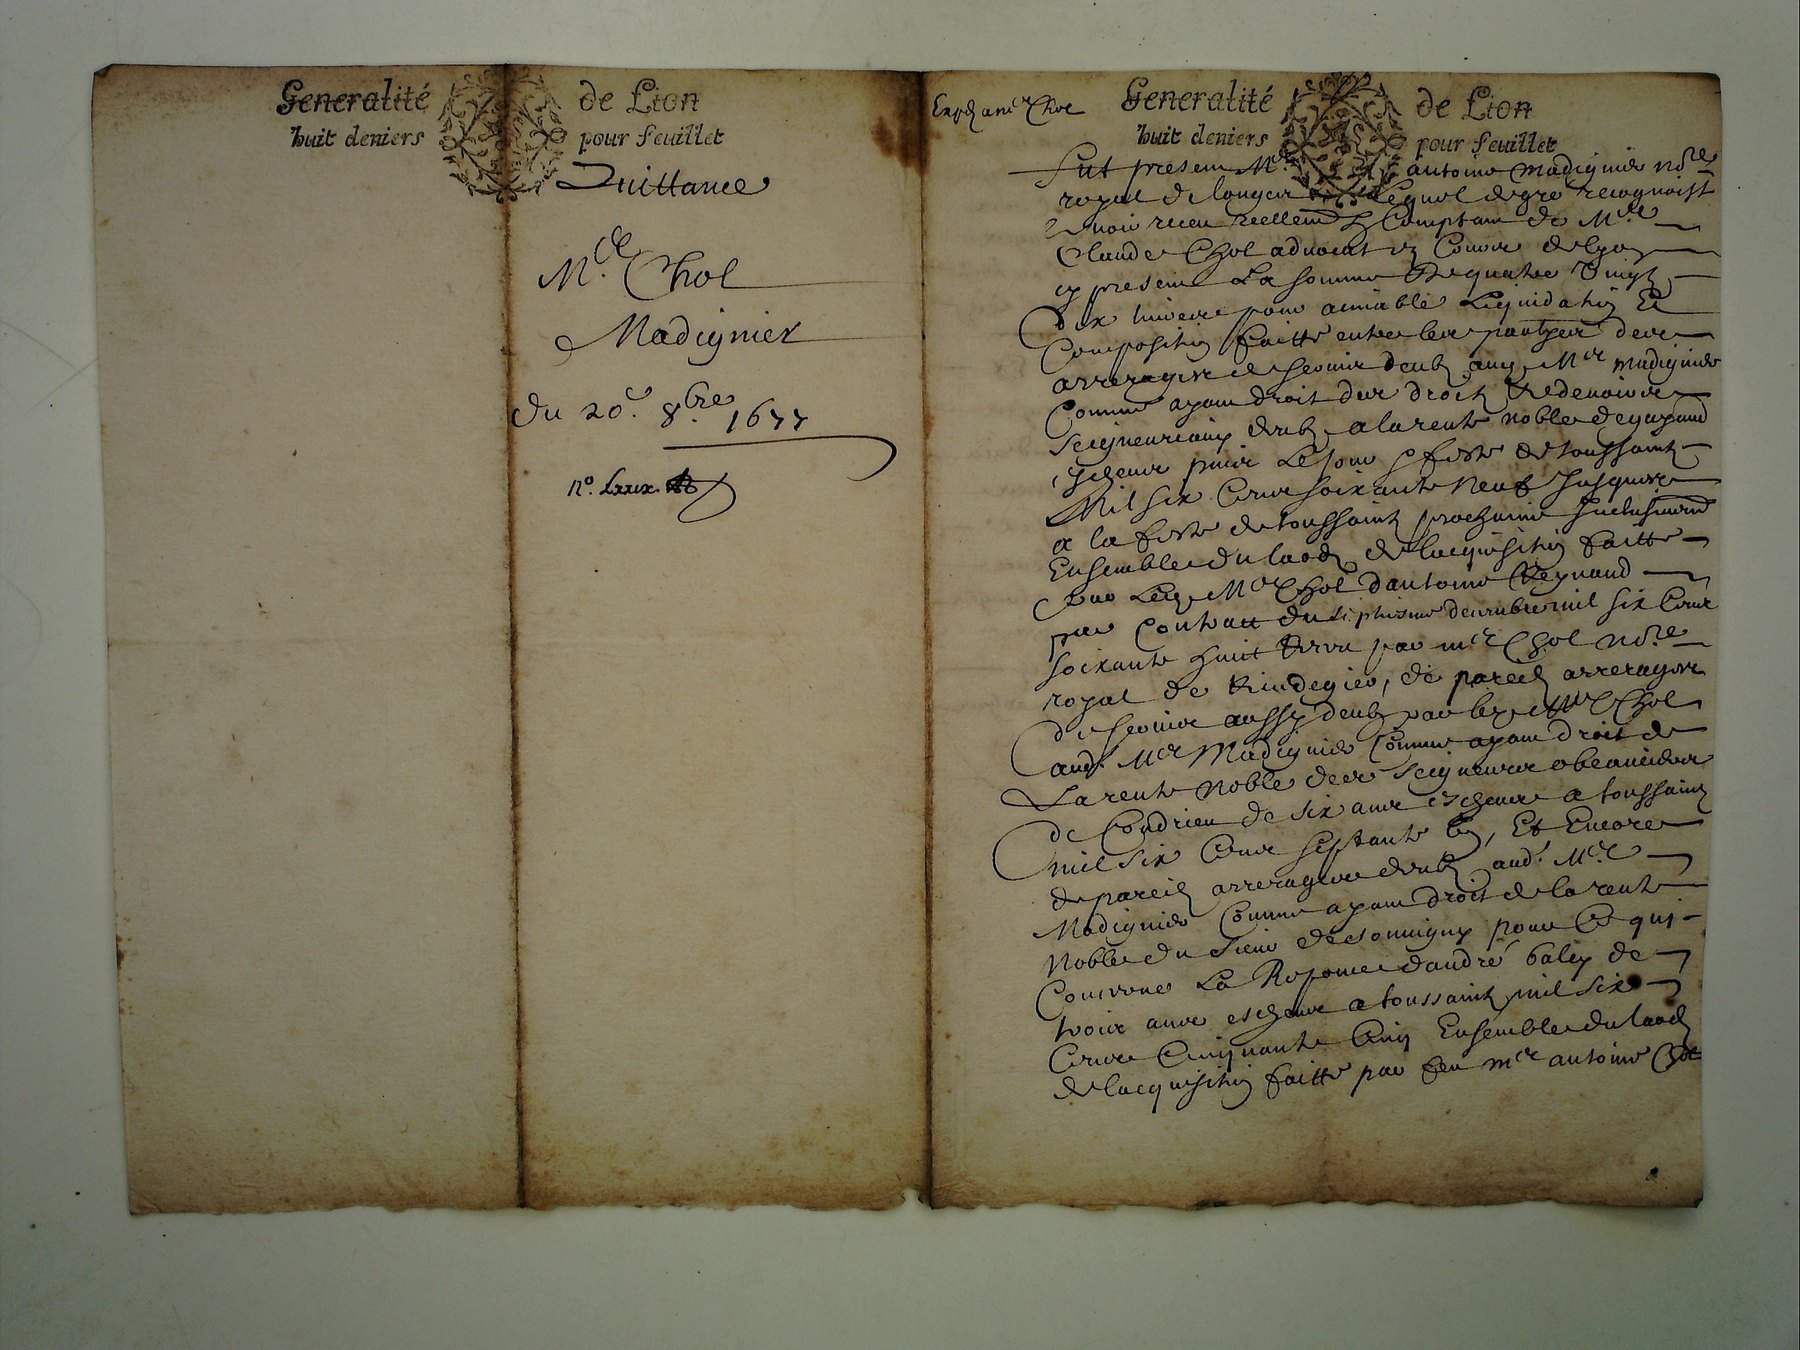 Generalité de Lion
huit deniers pour feuillet
Quittance
Mre Chol
Madignier
du 20e 8bre 1677
No. Lxxix
Expedn a mer Chol
Generalité de Lion
huit deniers pour feuillet
Fut present Me antoine Madignier nore
royal de longes Lequel de gre recognoist
avoir receu reellemt & Comptant de Mre
Claude Chol advocat es Cours de lyon
cy present La somme de quatre vingt
dix livres pour amiable Liquidation Et
Composition faitte entre les parties des
arrerages de servis deubz aud Mer Madignier
Comme ayant droit des droitz & devoirs
seigneuriaux deubz a la rente noble de
escheus puis Le jour & feste de toussaintz
Mil six Cens soixante neuf Jusques
a la feste de toussaintz prochaine Inclusivemt
Ensemble du laodz de lacquisition faitte
par Led Mer Chol dantoine Reynaud
par Contract du decembre mil six Cens
soixante huit receu par mer Chol nore
royal de Rivedegier, de pareilz arrerages
de servis aussy deubz par led Mer Chol
aud. Mer Madignier Comme ayant droit de
La rente noble des seigneurs obeanciers
de Condrieu de six ans escheus a toussaintz
mil six Cens septante , Et Encores
de pareilz arrerages deubz aud. Mer
Madignier Comme ayant droit de la rente
Noble du sieur de pour Ce qui
Concerne La Reponce dandré baley de
trois ans escheus a toussaintz mil six
Cens Cinquante Cinq Ensemble du laodz
de lacquisition faitte par feu mer antoine Chol